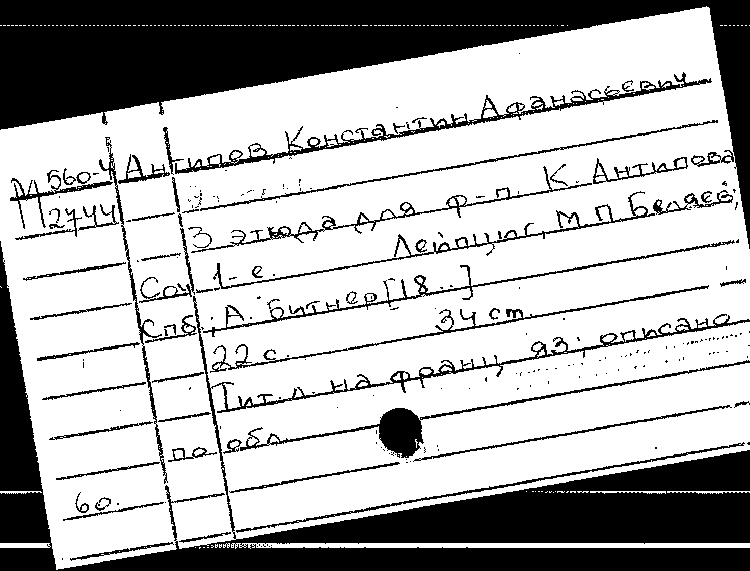 М 560-4 Антипов, Константин Афанасьевич
П 2744
3 этюда для ф-п. К. Антипова
Соч 1-е. Лейпциг, М П Беляев;
Спб; А. Битнер [18..]
22 с. 34 cm.
Тит. л. на франц. яз; описано
по обл.
60.